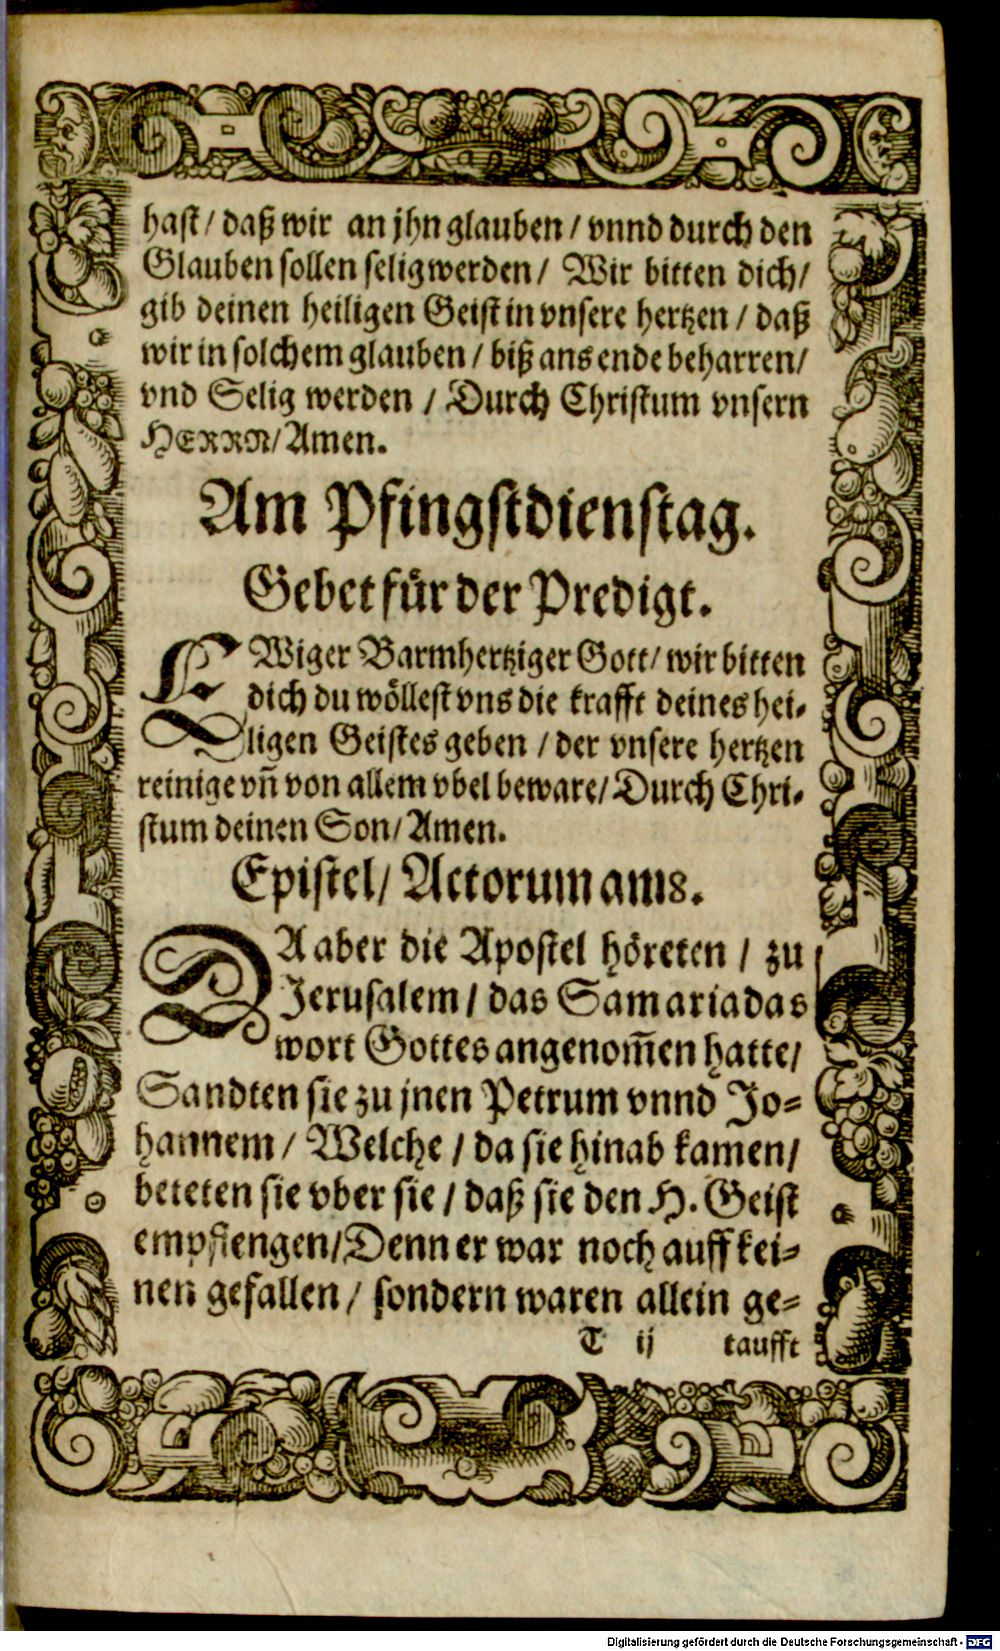 hast / daß wir an jhn glauben / vnnd durch den
Glauben sollen selig werden / Wir bitten dich /
gib deinen heiligen Geist in vnsere hertzen / daß
wir in solchem glauben / biß ans ende beharren /
vnd Selig werden / Durch Christum vnsern
HERRN / Amen.
Am Pfingstdienstag.
Gebet für der Predigt.
EWiger Barmhertziger Gott / wir bitten
dich du wöllest vns die krafft deines hei-
ligen Geistes geben / der vnsere hertzen
reinige vñ von allem vbel beware / Durch Chri-
stum deinen Son / Amen.
Epistel / Actorum am 8.
DA aber die Apostel höreten / zu
Jerusalem / das Samaria das
wort Gottes angenom̃en hatte /
Sandten sie zu jnen Petrum vnnd Jo-
hannem / Welche / da sie hinab kamen /
beteten sie vber sie / daß sie den H. Geist
empfiengen / Denn er war noch auff kei-
nen gefallen / sondern waren allein ge-
T ij taufft
Digitalisierung gefördert durch die Deutsche Forschungsgemeinschaft - DFG